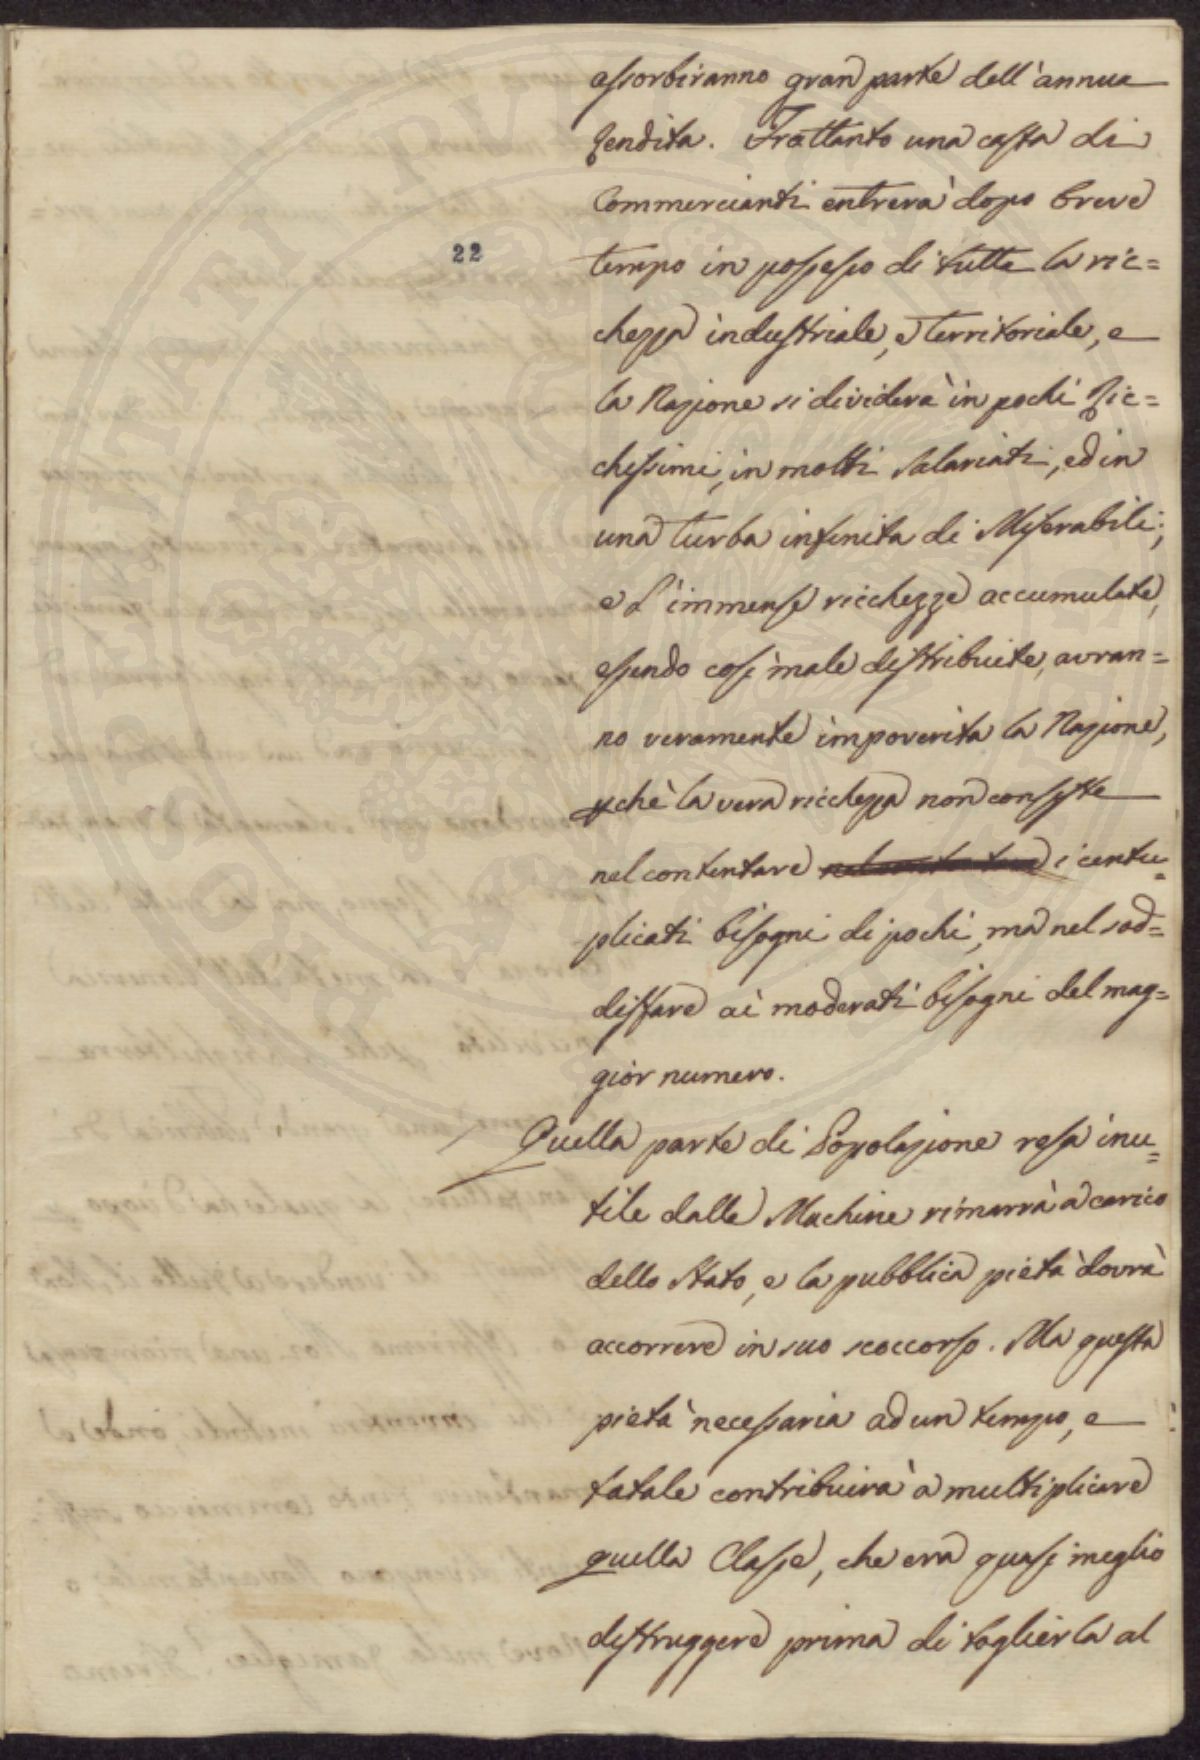 assorbiranno gran parte dell'annua
Rendita. Frattanto una casta di
Commercianti entrerà dopo breve
22
tempo in possesso di tutta la ric=
chezza industriale, e territoriale, e
la Nazione si dividerà in pochi Ric=
chissimi, in molti Salariati, ed in
una turba infinita di Miserabili;
e l'immense ricchezze accumulate,
essendo così male distribuite, avran=
no veramente impoverita la Nazione,
pchè la vera ricchezza non consiste
nel contentare i centu=
plicati bisogni di pochi, ma nel sod=
disfare ai moderati bisogni del mag=
gior numero.
Quella parte di Popolazione resa inu=
tile dalle Machine rimarrà a carico
dello Stato, e la pubblica pietà dovrà
accorrere in suo soccorso. Ma questa
pietà necessaria ad un tempo, e
fatale contribuirà a multiplicare
quella Classe, che era quasi meglio
distruggere prima di toglierla al